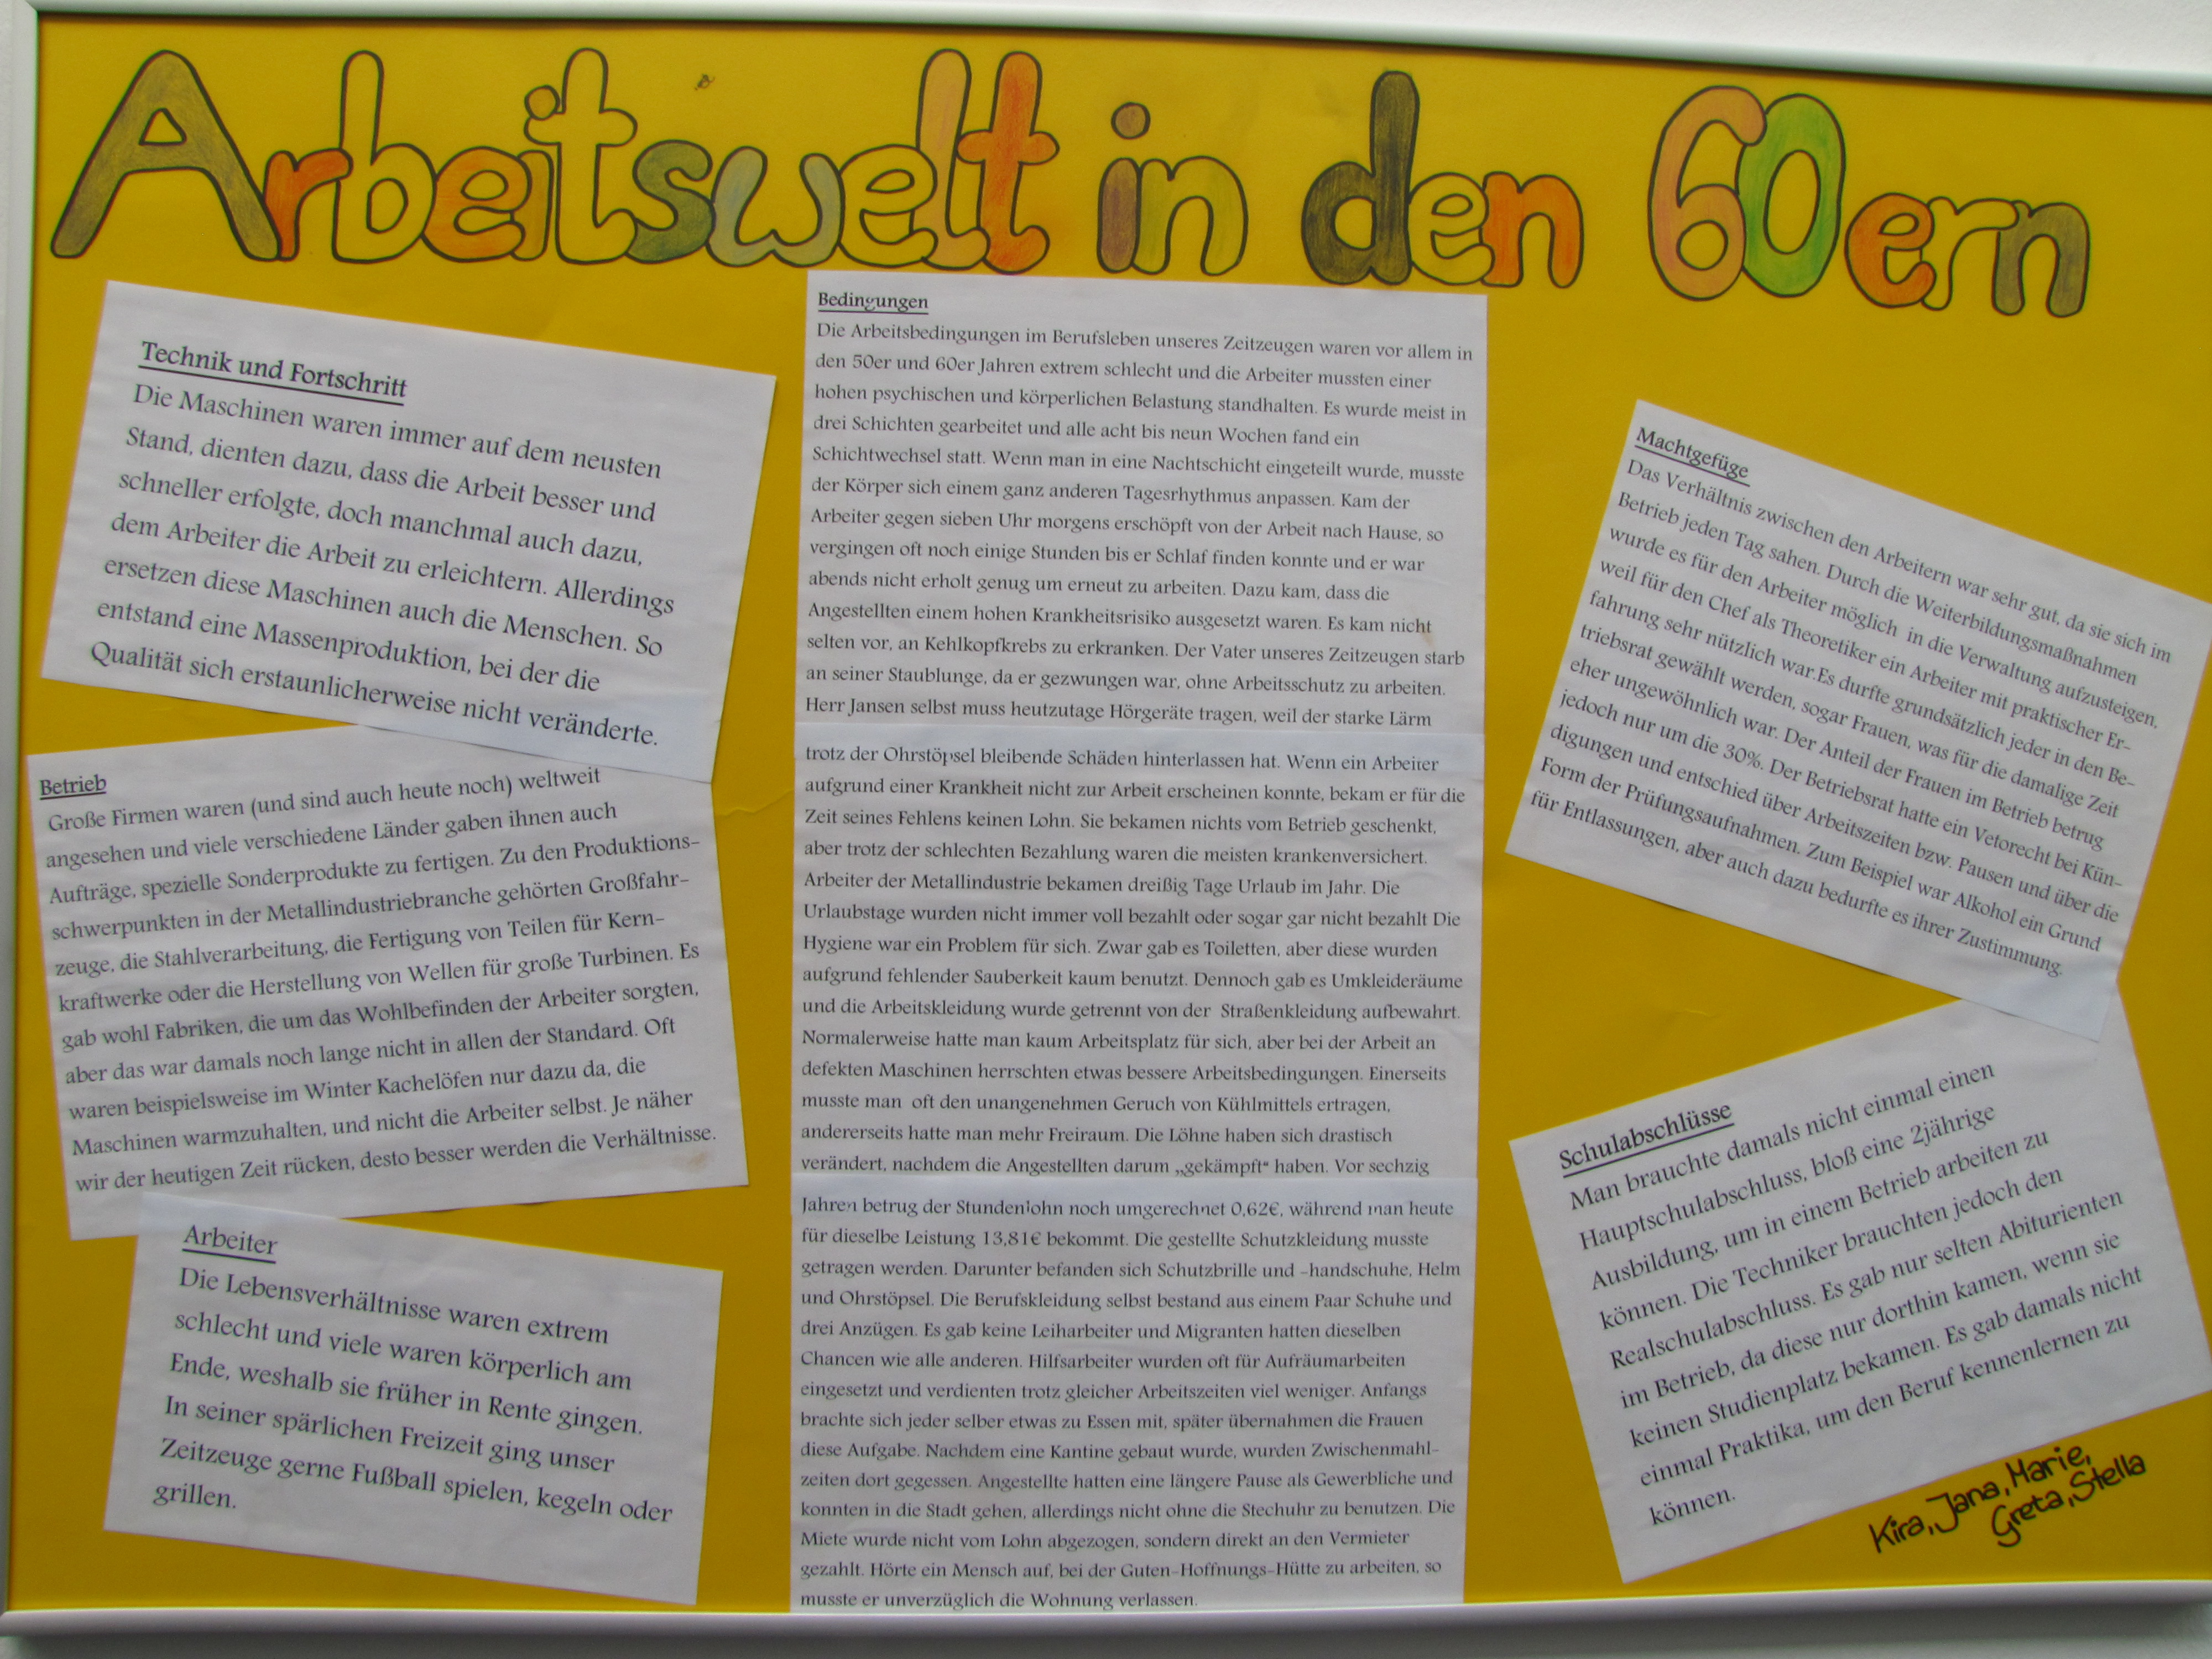 Arbeitswelt in den 60ern
Technik und Fortschritt
Die Maschinen waren immer auf dem neusten
Stand, dienten dazu, dass die Arbeit besser und
schneller erfolgte, doch manchmal auch dazu,
dem Arbeiter die Arbeit zu erleichtern. Allerdings
ersetzen diese Maschinen auch die Menschen. So
entstand eine Massenproduktion, bei der die
Qualität sich erstaunlicherweise nicht veränderte.
Betrieb
Große Firmen waren (und sind auch heute noch) weltweit
angesehen und viele verschiedene Länder gaben ihnen auch
Aufträge, spezielle Sonderprodukte zu fertigen. Zu den Produktions-
schwerpunkten in der Metallindustriebranche gehörten Großfahr-
zeuge, die Stahlverarbeitung, die Fertigung von Teilen für Kern-
kraftwerke oder die Herstellung von Wellen für große Turbinen. Es
gab wohl Fabriken, die um das Wohlbefinden der Arbeiter sorgten,
aber das war damals noch lange nicht in allen der Standard. Oft
waren beispielsweise im Winter Kachelöfen nur dazu da, die
Maschinen warmzuhalten, und nicht die Arbeiter selbst. Je näher
wir der heutigen Zeit rücken, desto besser werden die Verhältnisse.
Arbeiter
Die Lebensverhältnisse waren extrem
schlecht und viele waren körperlich am
Ende, weshalb sie früher in Rente gingen.
In seiner spärlichen Freizeit ging unser
Zeitzeuge gerne Fußball spielen, kegeln oder
grillen.
Bedingungen
Die Arbeitsbedingungen im Berufsleben unseres Zeitzeugen waren vor allem in
den 50er und 60er Jahren extrem schlecht und die Arbeiter mussten einer
hohen psychischen und körperlichen Belastung standhalten. Es wurde meist in
drei Schichten gearbeitet und alle acht bis neun Wochen fand ein
Schichtwechsel statt. Wenn man in eine Nachtschicht eingeteilt wurde, musste
der Körper sich einem ganz anderen Tagesrhythmus anpassen. Kam der
Arbeiter gegen sieben Uhr morgens erschöpft von der Arbeit nach Hause, so
vergingen oft noch einige Stunden bis er Schlaf finden konnte und er war
abends nicht erholt genug um erneut zu arbeiten. Dazu kam, dass die
Angestellten einem hohen Krankheitsrisiko ausgesetzt waren. Es kam nicht
selten vor, an Kehlkopfkrebs zu erkranken. Der Vater unseres Zeitzeugen starb
an seiner Staublunge, da er gezwungen war, ohne Arbeitsschutz zu arbeiten.
Herr Jansen selbst muss heutzutage Hörgeräte tragen, weil der starke Lärm
trotz der Ohrstöpsel bleibende Schäden hinterlassen hat. Wenn ein Arbeiter
aufgrund einer Krankheit nicht zur Arbeit erscheinen konnte, bekam er für die
Zeit seines Fehlens keinen Lohn. Sie bekamen nichts vom Betrieb geschenkt,
aber trotz der schlechten Bezahlung waren die meisten krankenversichert.
Arbeiter der Metallindustrie bekamen dreißig Tage Urlaub im Jahr. Die
Urlaubstage wurden nicht immer voll bezahlt oder sogar gar nicht bezahlt Die
Hygiene war ein Problem für sich. Zwar gab es Toiletten, aber diese wurden
aufgrund fehlender Sauberkeit kaum benutzt. Dennoch gab es Umkleideräume
und die Arbeitskleidung wurde getrennt von der Straßenkleidung aufbewahrt.
Normalerweise hatte man kaum Arbeitsplatz für sich, aber bei der Arbeit an
defekten Maschinen herrschten etwas bessere Arbeitsbedingungen. Einerseits
musste man oft den unangenehmen Geruch von Kühlmittels ertragen,
andererseits hatte man mehr Freiraum. Die Löhne haben sich drastisch
verändert, nachdem die Angestellten darum „gekämpft“ haben. Vor sechzig
Jahren betrug der Stundenlohn noch umgerechnet 0,62€, während man heute
für dieselbe Leistung 13,81€ bekommt. Die gestellte Schutzkleidung musste
getragen werden. Darunter befanden sich Schutzbrille und -handschuhe, Helm
und Ohrstöpsel. Die Berufskleidung selbst bestand aus einem Paar Schuhe und
drei Anzügen. Es gab keine Leiharbeiter und Migranten hatten dieselben
Chancen wie alle anderen. Hilfsarbeiter wurden oft für Aufräumarbeiten
eingesetzt und verdienten trotz gleicher Arbeitszeiten viel weniger. Anfangs
brachte sich jeder selber etwas zu Essen mit, später übernahmen die Frauen
diese Aufgabe. Nachdem eine Kantine gebaut wurde, wurden Zwischenmahl-
zeiten dort gegessen. Angestellte hatten eine längere Pause als Gewerbliche und
konnten in die Stadt gehen, allerdings nicht ohne die Stechuhr zu benutzen. Die
Miete wurde nicht vom Lohn abgezogen, sondern direkt an den Vermieter
gezahlt. Hörte ein Mensch auf, bei der Guten-Hoffnungs-Hütte zu arbeiten, so
musste er unverzüglich die Wohnung verlassen.
Machtgefüge
Das Verhältnis zwischen den Arbeitern war sehr gut, da sie sich im
Betrieb jeden Tag sahen. Durch die Weiterbildungsmaßnahmen
wurde es für den Arbeiter möglich in die Verwaltung aufzusteigen,
weil für den Chef als Theoretiker ein Arbeiter mit praktischer Er-
fahrung sehr nützlich war.Es durfte grundsätzlich jeder in den Be-
triebsrat gewählt werden, sogar Frauen, was für die damalige Zeit
eher ungewöhnlich war. Der Anteil der Frauen im Betrieb betrug
jedoch nur um die 30%. Der Betriebsrat hatte ein Vetorecht bei Kün-
digungen und entschied über Arbeitszeiten bzw. Pausen und über die
Form der Prüfungsaufnahmen. Zum Beispiel war Alkohol ein Grund
für Entlassungen, aber auch dazu bedurfte es ihrer Zustimmung.
Schulabschlüsse
Man brauchte damals nicht einmal einen
Hauptschulabschluss, bloß eine 2jährige
Ausbildung, um in einem Betrieb arbeiten zu
können. Die Techniker brauchten jedoch den
Realschulabschluss. Es gab nur selten Abiturienten
im Betrieb, da diese nur dorthin kamen, wenn sie
keinen Studienplatz bekamen. Es gab damals nicht
einmal Praktika, um den Beruf kennenlernen zu
können.
Kira, Jana, Marie,
Greta, Stella